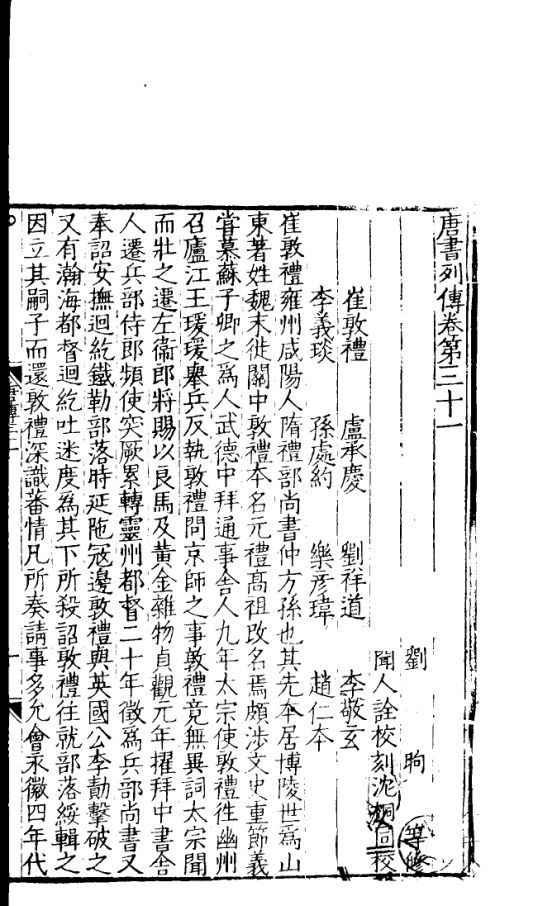 唐書列傳卷第三十一
劉 昫 等修
聞人詮校刻沈桐同校
崔敦禮 盧承慶 劉祥道 李敬玄
李義琰 孫處約 樂彦瑋 趙仁本
崔敦禮雍州咸陽人隋禮部尚書仲方孫也其先本居博陵世爲山
東著姓魏末徙關中敦禮本名元禮髙祖改名焉頗涉文史重節義
甞慕蘇子卿之爲人武德中拜通事舎人九年太宗使敦禮徃幽州
召廬江王瑗瑗舉兵反執敦禮問京師之事敦禮竟無異詞太宗聞
而壯之遷左衞郎將賜以良馬及黄金雜物貞觀元年擢拜中書舎
人遷兵部侍郎頻使突厥累轉靈州都督二十年徵爲兵部尚書又
奉詔安撫迴紇鐵勒部落時延陁冦邊敦禮與英國公李勣撃破之
又有瀚海都督迴紇吐迷度爲其下所殺詔敦禮往就部落綏輯之
因立其嗣子而還敦禮深識蕃情凡所奏請事多允會永徽四年代